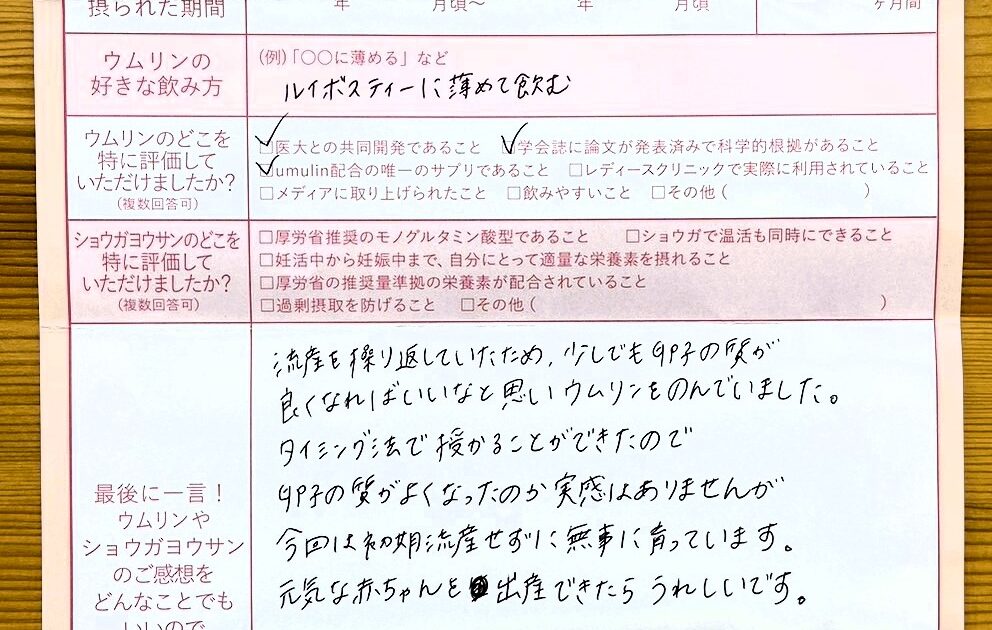 摂られた期間 年 月頃〜 年 月頃 ヶ月間
ウムリンの
好きな飲み方
(例)「〇〇に薄める」など
ルイボスティーに薄めて飲む
ウムリンのどこを
特に評価して
いただけましたか?
(複数回答可)
□医大との共同開発であること □学会誌に論文が発表済みで科学的根拠があること
□umulin配合の唯一のサプリであること □レディースクリニックで実際に利用されていること
□メディアに取り上げられたこと □飲みやすいこと □その他( )
ショウガヨウサンのどこを
特に評価して
いただけましたか?
(複数回答可)
□厚労省推奨のモノグルタミン酸型であること □ショウガで温活も同時にできること
□妊活中から妊娠中まで、自分にとって適量な栄養素を摂れること
□厚労省の推奨量準拠の栄養素が配合されていること
□過剰摂取を防げること □その他( )
最後に一言!
ウムリンや
ショウガヨウサン
のご感想を
どんなことでも
いいので
流産を繰り返していたため、少しでも卵子の質が
良くなればいいなと思いウムリンをのんでいました。
タイミング法で授かることができたので
卵子の質がよくなったのか実感はありませんが
今回は初期流産せずに無事に育っています。
元気な赤ちゃんを出産できたらうれしいです。